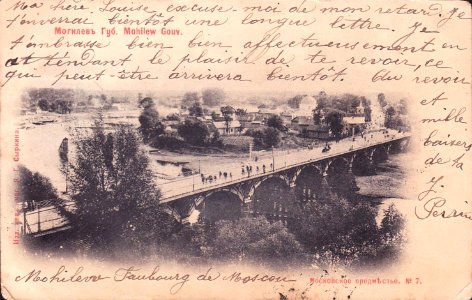 Ma chère Louise excuse moi de mon retard. Je
t'enverrai bientôt une longue lettre. Je
Могилевъ Губ. Mohilew Gouv.
t'embrasse bien bien affectueusement en
attendant le plaisir de te revoir, ce
qui peut-être arrivera bientôt. Au revoir
et
mille
baisers
de ta
J.
Perrin
Mohilew Faubourg de Moscou
Московское предмѣстье. № 7.